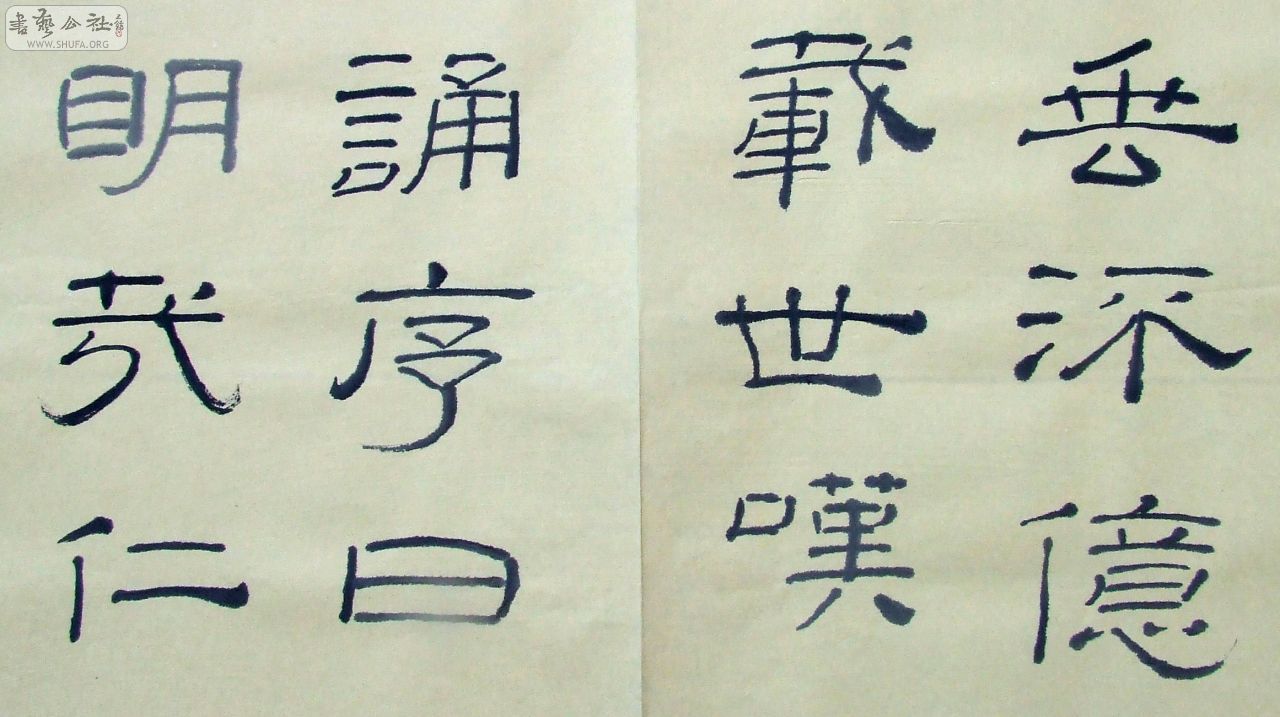 書藝公社
WWW.SHUFA.ORG
垂流億
載世嘆
誦序曰
明哉仁